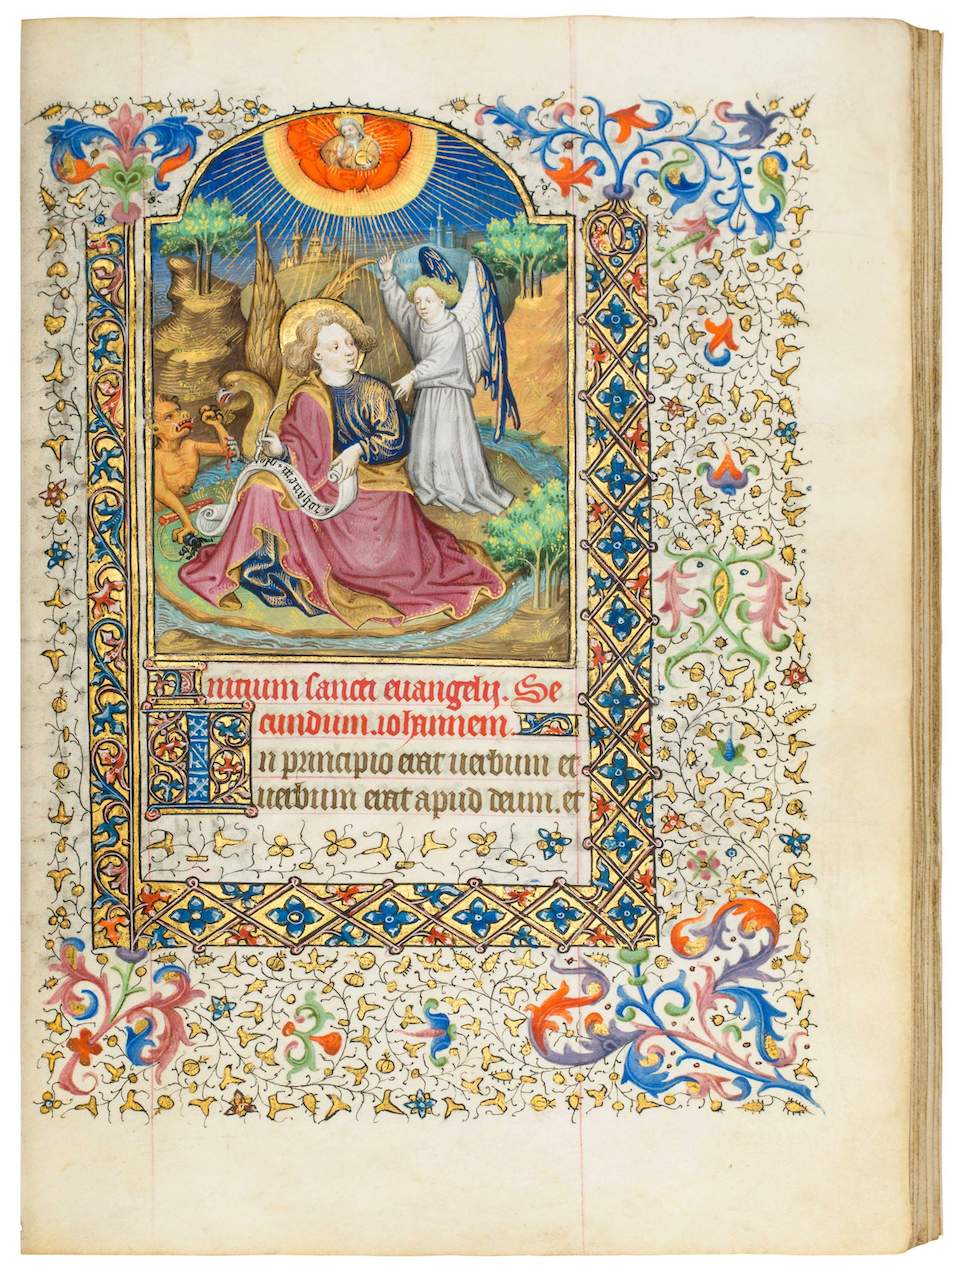 Initium sancti euangelij. Se
cundum. iohannem.
In principio erat uerbum et
uerbum erat apud deum. et